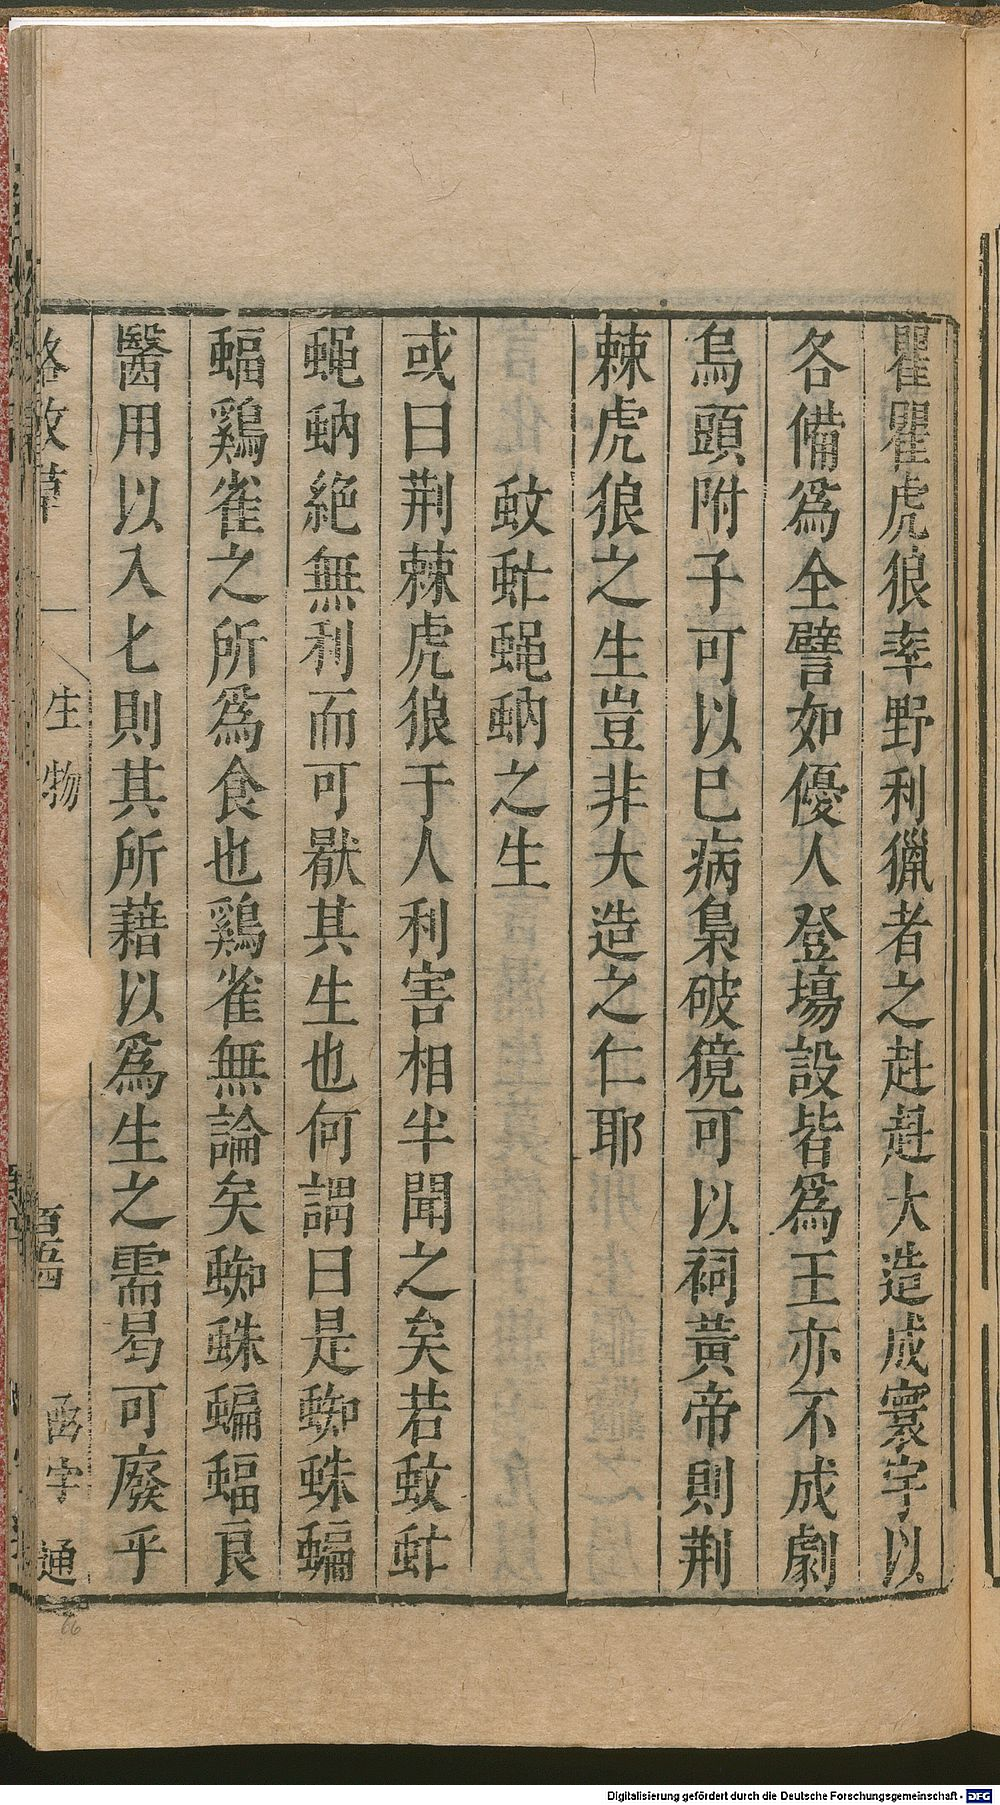 瞿瞿虎狼率野利獵者之赳赳大造成寰宇以
各備爲全譬如優人登塲設皆爲王亦不成劇
烏頭附子可以已病梟破獍可以祠黃帝則荆
棘虎狼之生豈非大造之仁耶
蚊虻蝿蚋之生
或曰荆棘虎狼于人利害相半聞之矣若蚊虻
蝿蚋絕無利而可厭其生也何謂曰是蜘蛛蝙
蝠鷄雀之所爲食也鷄雀無論矣蜘蛛蝙蝠良
醫用以入匕則其所藉以爲生之需曷可廢乎
格致草
生物
函宇通
66
Digitalisierung gefördert durch die Deutsche Forschungsgemeinschaft - DFG